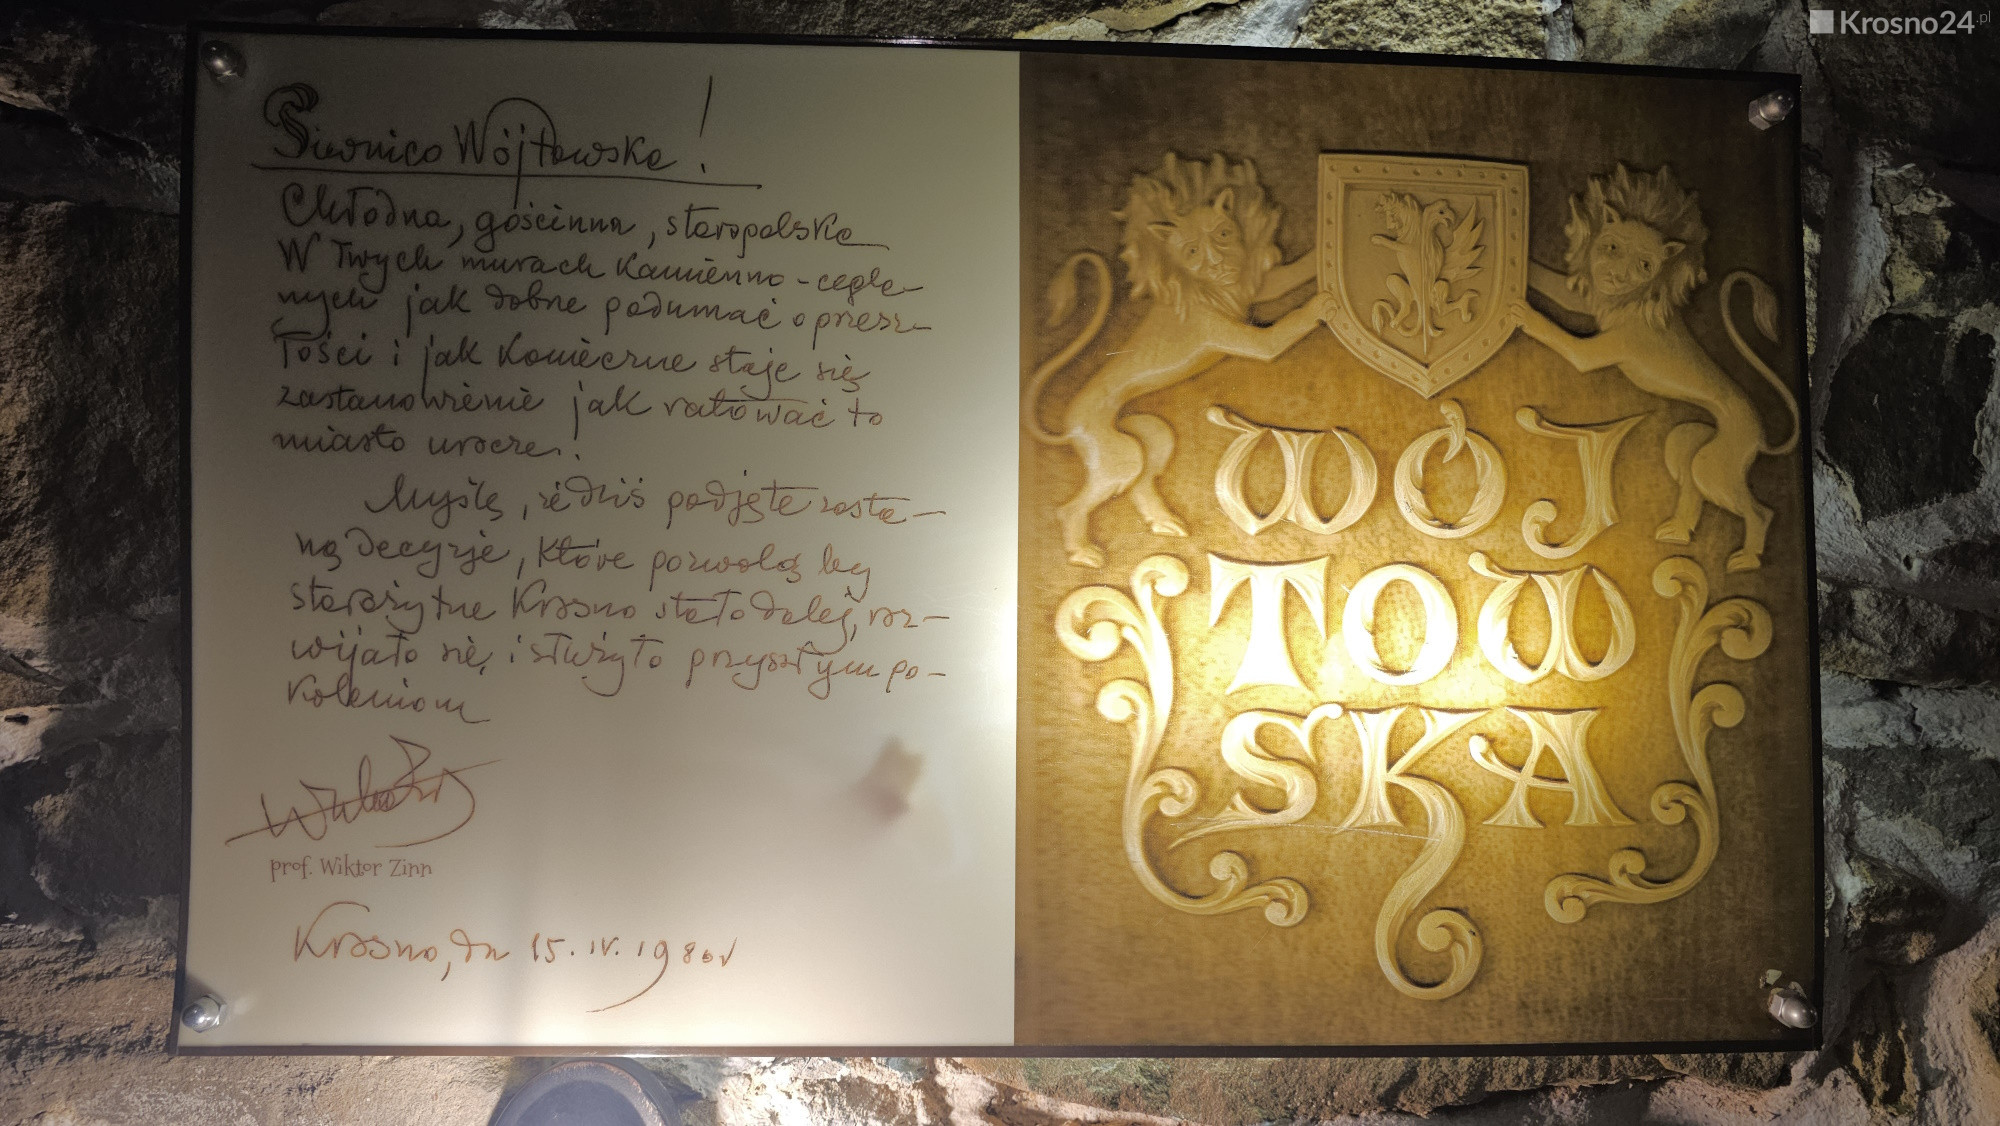 Piwnico Wójtowska!
Chłodna, gościnna, staropolska
W Twych murach kamienno-cegla-
nych jak dobrze podumać o przesz-
łości i jak konieczne staje się
zastanowienie jak ratować to
miasto urocze!
Myślę, że dziś podjęte zosta-
ną decyzje, które pozwolą by
starożytne Krosno stało dalej, roz-
wijało się, i służyło przyszłym po-
koleniom
prof. Wiktor Zinn
Krosno, dn 15.IV.1980r
WÓJ
TOW
SKA
Krosno24.pl